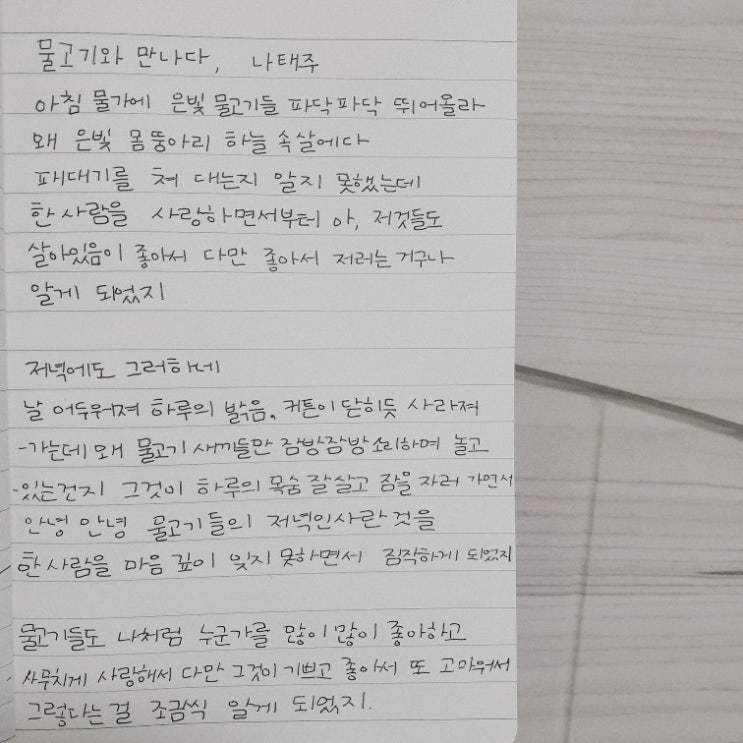 물고기와 만나다, 나태주
아침 물가에 은빛 물고기들 파닥파닥 뛰어올라
왜 은빛 몸뚱아리 하늘 속살에다
패대기를 쳐 대는지 알지 못했는데
한 사람을 사랑하면서부터 아, 저것들도
살아있음이 좋아서 다만 좋아서 저러는거구나
알게 되었지
저녁에도 그러하네
날 어두워져 하루의 밝음, 커튼이 닫히듯 사라져
-가는데 왜 물고기 새끼들만 잠방잠방 소리하며 놀고
-있는건지 그것이 하루의 목숨 잘 살고 잠을 자러 가면서
안녕 안녕 물고기들의 저녁인사란 것을
한 사람을 마음 깊이 잊지 못하면서 짐작하게 되었지
물고기들도 나처럼 누군가를 많이 많이 좋아하고
사무치게 사랑해서 다만 그것이 기쁘고 좋아서 또 고마워서
그렇다는걸 조금씩 알게 되었지.